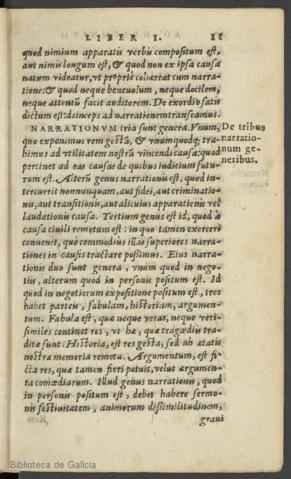 LIBER I. 11
quod nimium apparatis verbis compositum est,
aut nimis longum est, & quod non ex ipsa causa
natum videatur, vt propriè cohæreat cum narra-
tione: & quod neque beneuolum, neque docilem,
neque attentū facit auditorem. De exordio satis
dictum est: deinceps ad narrationem transeamus.
NARRATIONVM tria sunt genera. Vnum, De tribus
quo exponimus rem gestā, & vnumquodq; tra- narratio-
himus ad vtilitatem nostrā vincendi causa: quod num ge-
pertinet ad eas causas de quibus iudicium futu- neribus.
rum est. Alterū genus narrationis est, quod in-
tercurrit nonnunquam, aut fidei, aut criminatio-
nis, aut transitionis, aut alicuius apparationis vel
laudationis causa. Tertium genus est id, quod à
causa ciuili remotum est: in quo tamen exerceri
conuenit, quò commodius illas superiores narra-
tiones in causis tractare possimus. Eius narra-
tionis duo sunt genera, vnum quod in nego-
tiis, alterum quod in personis positum est. Id
quod in negotiorum expositione positum est, tres
habet parteis, fabulam, historiam, argumen-
tum. Fabula est, quæ neque veras, neque veri-
similes continet res, vt hæ, quæ tragœdiis tra-
ditæ sunt. Historia, est res gesta, sed ab ætatis
nostræ memoria remota. Argumentum, est fi-
cta res, quæ tamen fieri potuit, velut argumen-
ta comœdiarum. Illud genus narrationis, quod
in personis positum est, debet habere sermo-
nis festiuitatem, animorum dissimilitudinem,
graui
Biblioteca de Galicia